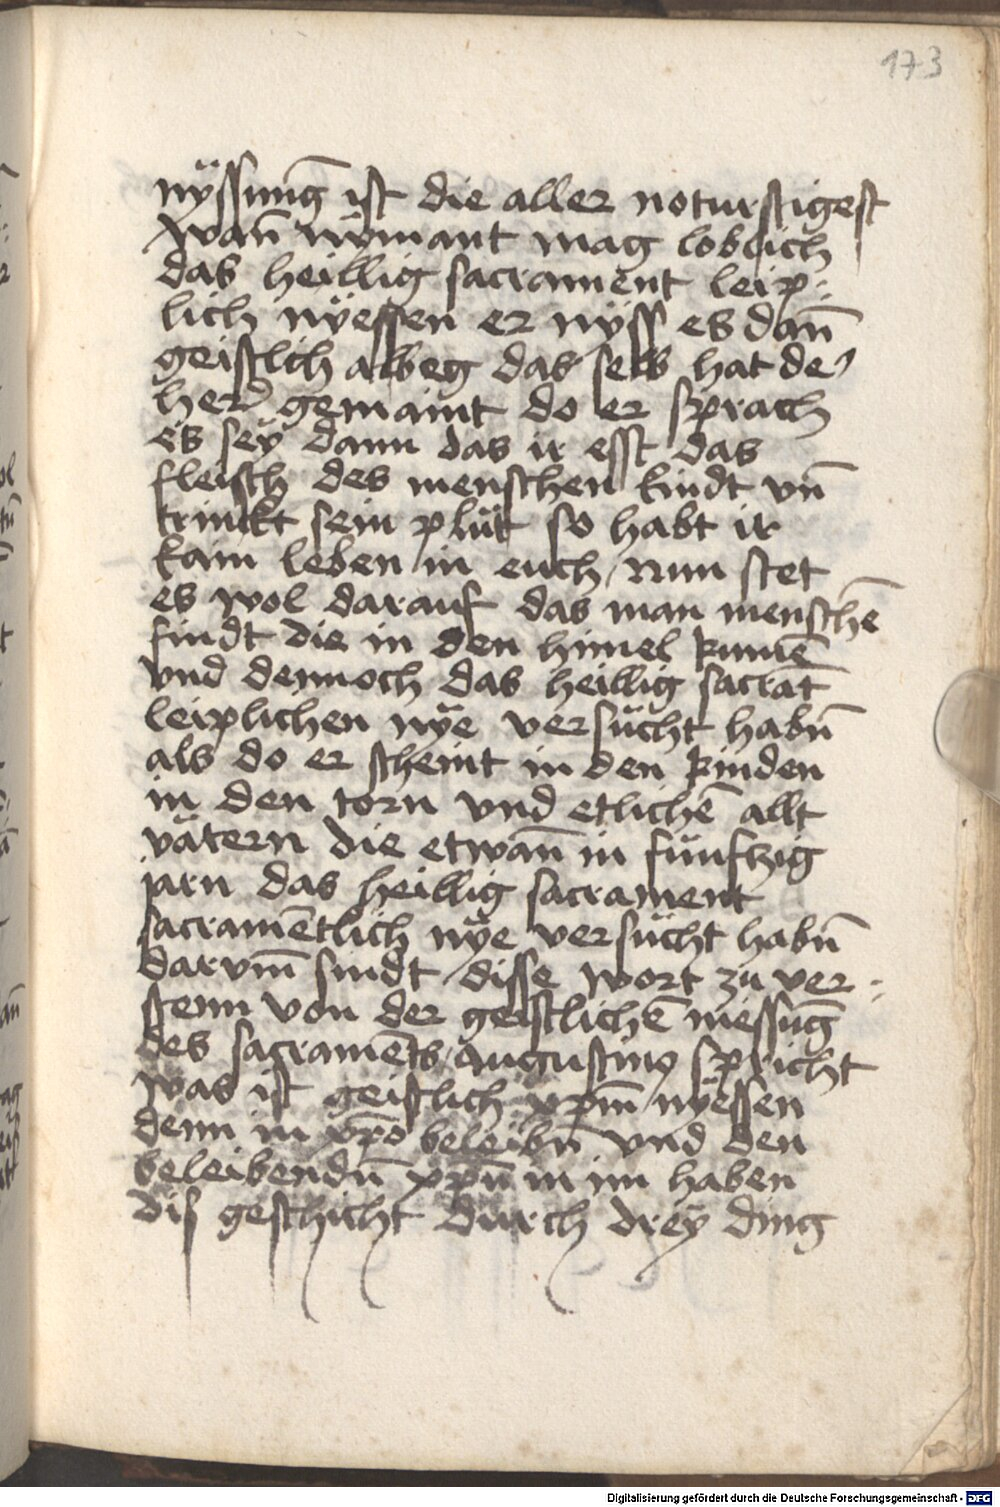 173
nÿssunḡ ist die aller noturftigest
wan̄ nÿmant mag loblich
das heillig sacrament leip:
lich nÿessen er nÿss es dan̄
geistlich albeg das selb hat de'
her gemaint do er sprach
es seÿ dann das ir esst das
fleisch des menschen kindt vn̄
trinckt sein plůt so habt ir
kain leben in euch / Nun stet
es wol darauf das man menschē
findt die in den himel kumē
vnd dennoch das heillig sacrat̄
leiplichen nÿe versůcht habn̄
als do er scheint in den kinden
in den torn vnd etlichē allt
vätern die etwan̄ in fünfzig
jarn das heillig sacrament
sacramētlich nÿe versůcht habn̄
darvm̄ sindt disse wort zů ver:
stenn von der geistlichē niessūg
des sacramēts Augustinꝰ spricht
was ist geistlich xp̄m nÿessen
denn in xp̄o beleibn̄ vnd den
beleibendn̄ xp̄n in im haben
dis geschicht durch dreÿ ding
Digitalisierung gefördert durch die Deutsche Forschungsgemeinschaft - DFG